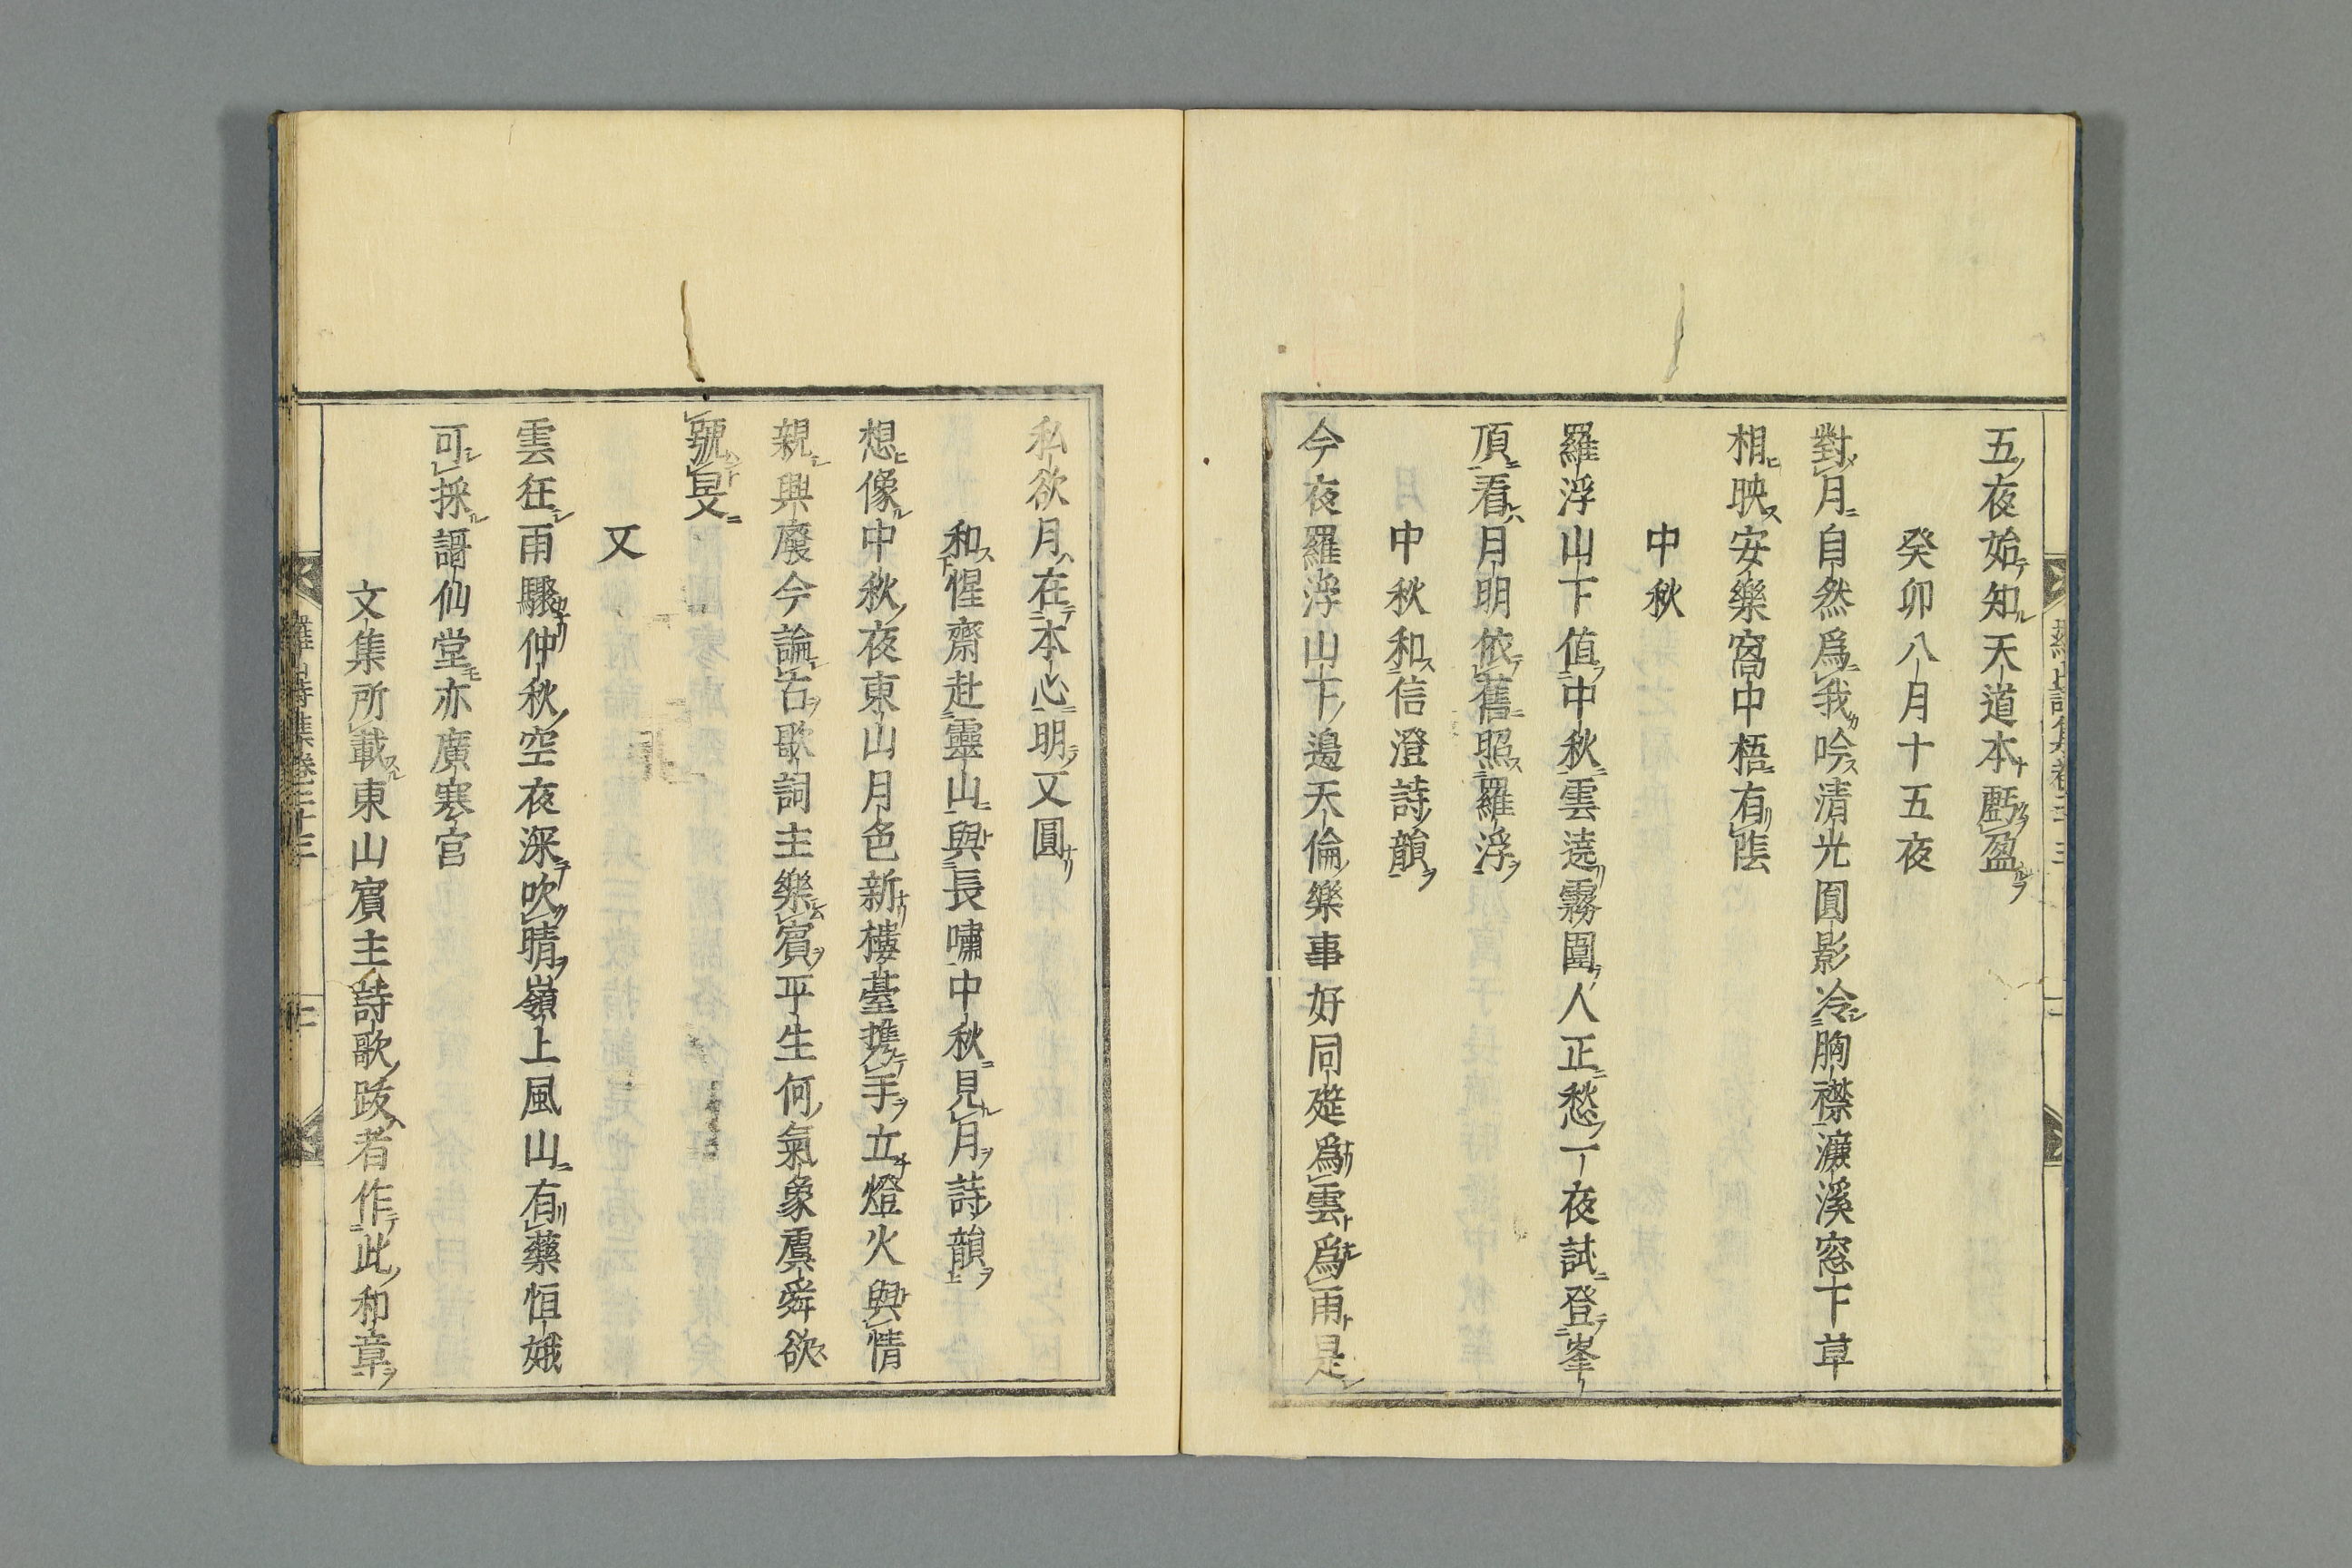 五夜始知天道本虧盈
癸卯八月十五夜
對月自然爲我吟清光圓影冷胸襟濂溪窓下草
相映安樂窩中梧有陰
中秋
羅浮山下値中秋雲遶霧圍人正愁一夜試登峯
頂看月明依舊照羅浮
中秋和信澄詩韻
今夜羅浮山下邉天倫樂事好同筵爲雲爲雨是
私欲月在本心明又圓
和惺齋赴靈山與長嘯中秋見月詩韻
想像中秋夜東山月色新樓臺携手立燈火與情
親興廢今論古歌詞主樂賓平生何氣象虞舜欲
號旻
又
雲狂雨驟仲秋空夜深吹晴嶺上風山有藥恒娥
可採謌仙堂亦廣寒宮
文集所載東山賓主詩歌跋者作此和章
羅山詩集卷三十三
二